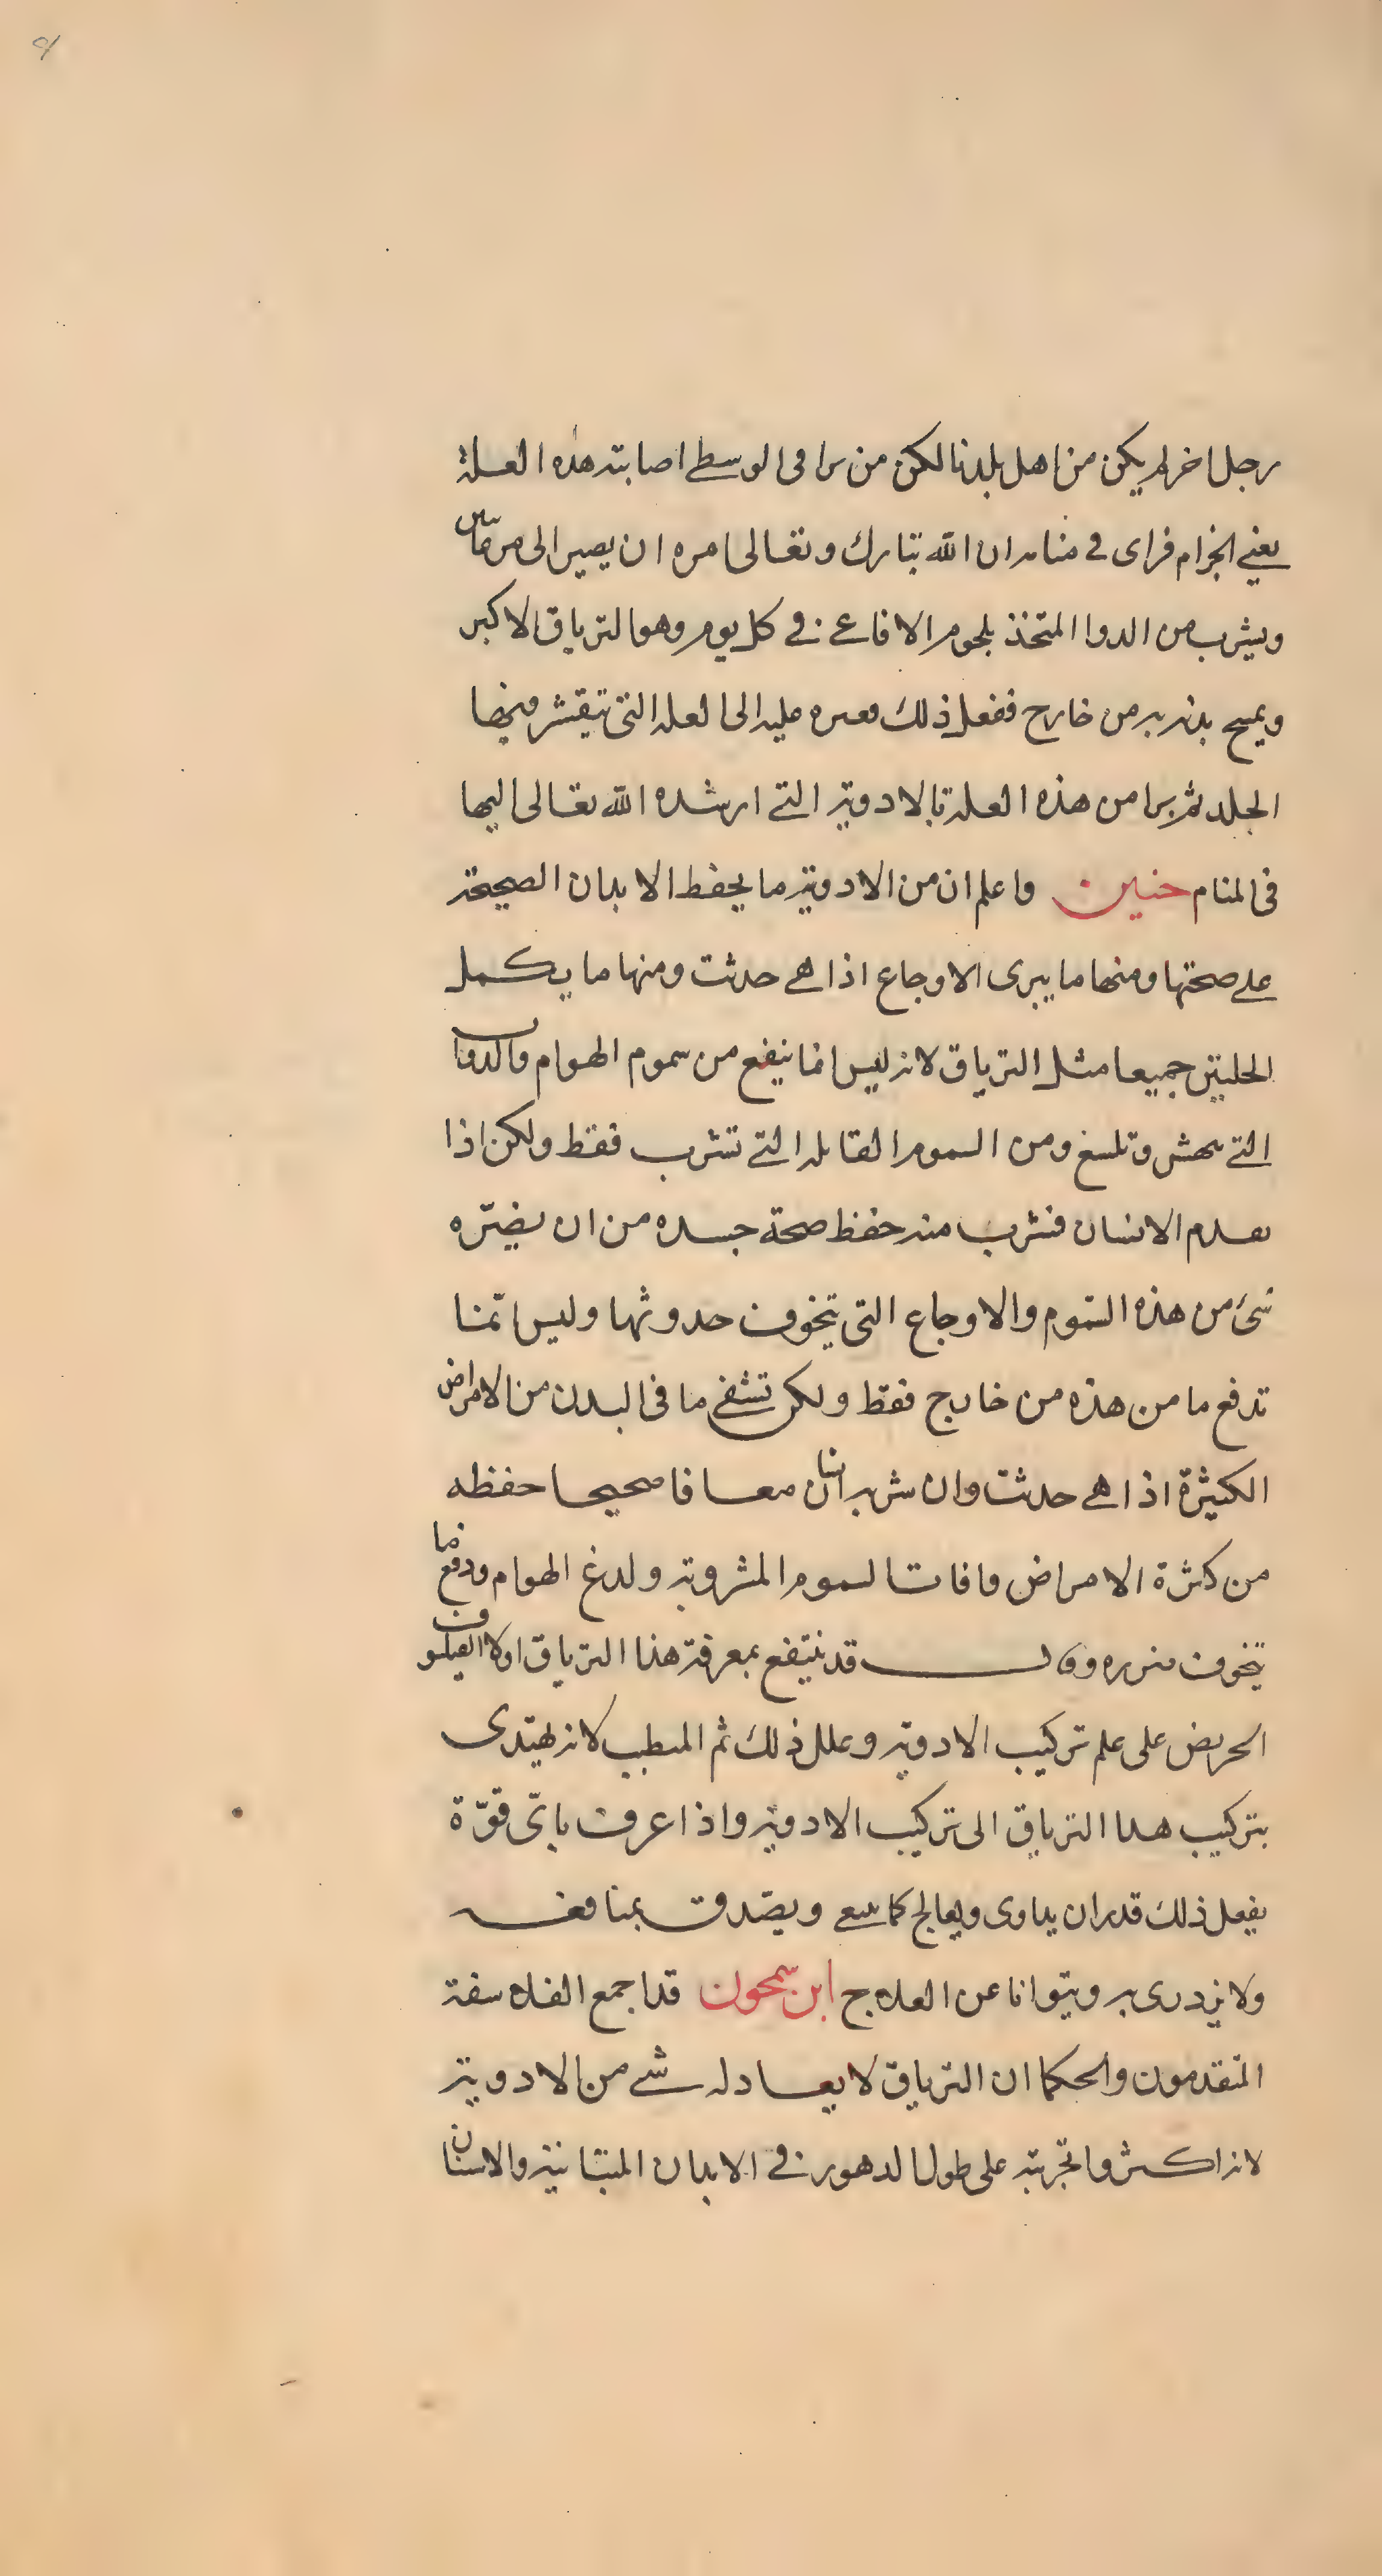 رجل اخر لم يكن من اهل بلدنا لكن من براقي الوسطى اصابته هذه العلة
يعني الجزام فراى في منامه ان الله تبارك وتعالى امره ان يصير الى
ويشرب من الدوا المتخذ بلحوم الافاعي في كل يوم وهو الترياق الاكبر
ويمسح بدنه به من خارج ففعل ذلك عليه الى العله التي تتقشر فيها
الجلد ثم برا من هذه العلة بالادوية التي ارشده الله تعالى اليها
في المنام حنين واعلم ان من الادوية ما يحفظ الابدان الصحيحة
على صحتها ومنها ما يبرى الاوجاع اذا هي حدثت ومنها ما يكمل
الحلتين جميعا مثل الترياق لانه ليس انما ينفع من سموم الهوام والدواب
التي تنهش وتلسع ومن السموم القاتله التي تشرب فقط ولكن اذا
تقدم الانسان فشرب منه حفظ صحة جسده من ان يضره
شئ من هذه السموم والاوجاع التي يتخوف حدوثها وليس انما
تدفع ما من هذه من خارج فقط ولكن تشفي ما في البدن من الامراض
الكثيرة اذا هي حدثت وان شربه انسان معافا صحيحا حفظه
من كثرة الامراض وافات السموم المشروبة ولدغ الهوام ودفع ما
يتخوف ضرره وقال قد ينتفع بمعرفة هذا الترياق اولا الفيلسوف
الحريص على علم تركيب الادوية وعلل ذلك ثم المطبب لانه يهتدى
بتركيب هذا الترياق الى تركيب الادوية واذا عرف باى قوة
يفعل ذلك قدر ان يداوى ويعالج كما ينبغي ويصدق بمنافعه
ولا يزدرى به ويتوانا عن العلاج ابن سمحون قد اجمع الفلاسفة
المتقدمون والحكما ان الترياق لا يعادله شي من الادوية
لانه اكثروا تجربته على طول الدهور في الابدان المتباينة والاسنان